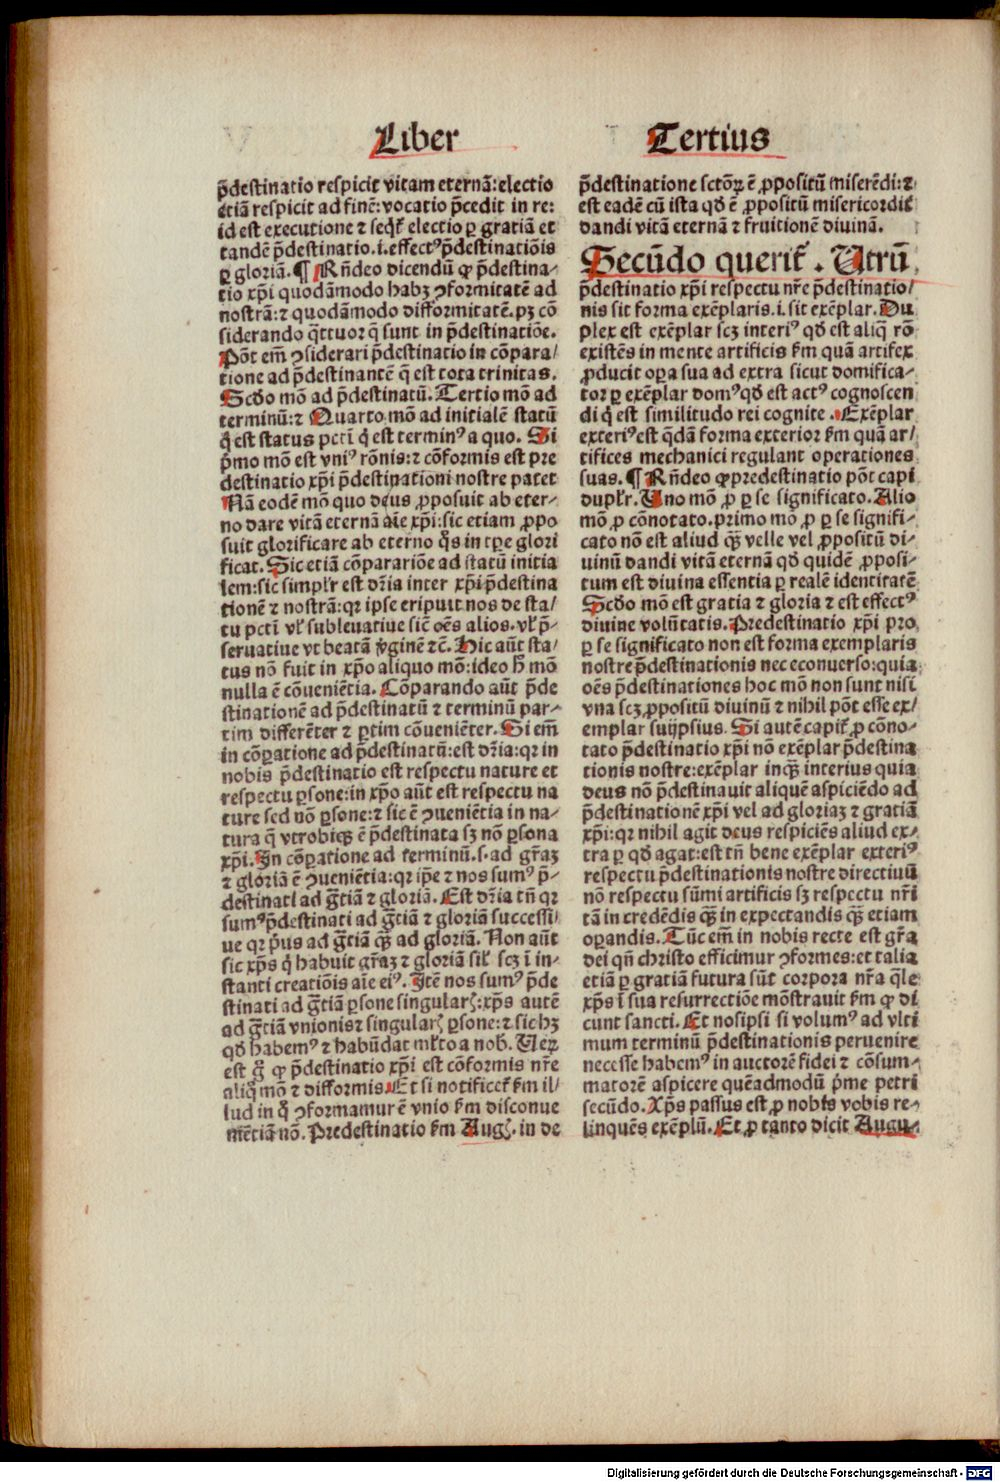 Liber Tertius
p̄destinatio respicit vitam eternā: electio
etiā respicit ad finē: vocatio p̄cedit in re:
id est executione ⁊ seqt᷑ electio ꝑ gratiā et
tandē p̄destinatio.i.effectꝰ p̄destinatiōis
ꝑ gloriā. ¶ Rn̄deo dicendū ꝙ p̄destina⸗
tio xp̄i quodāmodo habꝫ ꝯformitatē ad
nostrā: ⁊ quodāmodo difformitatē. pꝫ cō
siderando q̄ttuor q̄ sunt in p̄destinatiōe.
Pōt em̄ ꝯsiderari p̄destinatio in cōpara/
tione ad p̄destinantē q̄ est tota trinitas.
Scd̓o mō ad p̄destinatū. Tertio mō ad
terminū: ⁊ Quarto mō ad initialē statū
q̇ est status pctī q̇ est terminꝰ a quo. Si
p̄mo mō est vniꝰ rōnis: ⁊ cōformis est pre
destinatio xp̄i p̄destinationi nostre patet
Nā eodē mō quo deus ꝓposuit ab eter⸗
no dare vitā eternā aīe xp̄i: sic etiam ꝓpo
suit glorificare ab eterno q̊s in tp̄e glori
ficat. Sic etiā cōparariōe ad statū initia
lem: sic simpl̓r est dr̄ia inter xp̄i p̄destina
tionē ⁊ nostrā: qꝛ ipse eripuit nos de sta/
tu pctī vl̓ subleuatiue sic̄ oēs alios. vl̓ p̄⸗
seruatiue vt beatā v̓ginē ⁊c̄. Hic aūt sta⸗
tus nō fuit in xp̄o aliquo mō: ideo h̄ mō
nulla ē cōueniētia. Cōparando aūt p̄de
stinationē ad p̄destinatū ⁊ terminū par⸗
tim differēter ⁊ ꝑtim cōueniēter. Si em̄
in cōꝑatione ad p̄destinatū: est dr̄ia: qꝛ in
nobis p̄destinatio est respectu nature et
respectu ꝑsone: in xp̄o aūt est respectu na
ture sed nō ꝑsone: ⁊ sic ē ꝯueniētia in na⸗
tura q̄ vtrobiqꝫ ē p̄destinata sꝫ nō ꝑsona
xp̄i. In cōꝑatione ad terminū.s.ad gr̄aꝫ
⁊ gloriā ē ꝯueniētia: qꝛ ip̄e ⁊ nos sumꝰ p̄⸗
destinati ad gr̄tiā ⁊ gloriā. Est dr̄ia tn̄ qꝛ
sumꝰ p̄destinati ad gr̄tiā ⁊ gloriā successi/
ue qꝛ p̓us ad gr̄tiā qꝫ̄ ad gloriā. Non aūt
sic xp̄s q̇ habuit gr̄aꝫ ⁊ gloriā sil̓ scꝫ ī in⸗
stanti creatiōis aīe eiꝰ. Itē nos sumꝰ p̄de
stinati ad gr̄tiā ꝑsone singularꝭ: xp̄s autē
ad gr̄tiā vnionis ⁊ singularꝭ ꝑsone: ⁊ sic hꝫ
qd̓ habemꝰ ⁊ habūdat ml̓to a nob. Veꝝ
est g̊ ꝙ p̄destinatio xp̄i est cōformis nr̄e
aliq̊ mō ⁊ difformis. Et si notificet᷑ ẜm il/
lud in q̊ ꝯformamur ē vnio ẜm disconue
niētiā nō. Predestinatio ẜm Augꝭ. in de
p̄destinatione sctōꝝ ē ꝓpositū miserēdi: ⁊
est eadē cū ista qd̓ ē ꝓpositū misericordie
dandi vitā eternā ⁊ fruitionē diuinā.
Secūdo querit᷑. Utrū
p̄destinatio xp̄i respectu nr̄e p̄destinatio/
nis sit forma exēplaris.i.sit exēplar. Du
plex est exēplar scꝫ interiꝰ qd̓ est aliq̄ rō
existēs in mente artificis ẜm quā artifex
ꝓducit oꝑa sua ad extra sicut domifica⸗
tor ꝑ exēplar domꝰ qd̓ est actꝰ cognoscen
di q̇ est similitudo rei cognite. Exēplar
exteriꝰ est q̄dā forma exterior ẜm quā ar/
tifices mechanici regulant operationes
suas. ¶ Rn̄deo ꝙ predestinatio pōt capi
dupl̓r. Uno mō ꝓ ꝑ se significato. Alio
mō ꝓ cōnotato. primo mō ꝓ ꝑ se signifi⸗
cato nō est aliud qꝫ̄ velle vel ꝓpositū di⸗
uinū dandi vitā eternā qd̓ quidē ꝓposi⸗
tum est diuina essentia ꝑ realē identitatē
Scd̓o mō est gratia ⁊ gloria ⁊ est effectꝰ
diuine volūtatis. Predestinatio xp̄i pro
ꝑ se significato non est forma exemplaris
nostre p̄destinationis nec econuerso: quia
oēs p̄destinationes hoc mō non sunt nisi
vna scꝫ ꝓpositū diuinū ⁊ nihil pōt esse ex/
emplar suijpsius. Si autē capit᷑ ꝓ cōno⸗
tato p̄destinatio xp̄i nō exēplar p̄destina
tionis nostre: exēplar inqꝫ̄ interius quia
deus nō p̄destinauit aliquē aspiciēdo ad
p̄destinationē xp̄i vel ad gloriaꝫ ⁊ gratiā
xp̄i: qꝛ nihil agit deus respiciēs aliud ex⸗
tra ꝑ qd̓ agat: est tn̄ bene exēplar exteriꝰ
respectu p̄destinationis nostre directiuū
nō respectu sūmi artificis sꝫ respectu nr̄i
tā in credēdis qꝫ̄ in expectandis qꝫ̄ etiam
oꝑandis. Tūc em̄ in nobis recte est gr̄a
dei qn̄ christo efficimur ꝯformes: et talia
etiā ꝑ gratiā futura sūt corpora nr̄a q̄le
xp̄s ī sua resurrectiōe mōstrauit ẜm ꝙ di
cunt sancti. Et nosipsi si volumꝰ ad vlti
mum terminū p̄destinationis peruenire
necesse habemꝰ in auctorē fidei ⁊ cōsum⸗
matorē aspicere quēadmodū p̓me petri
secūdo. Xp̄s passus est ꝓ nobis vobis re⸗
linquēs exēplū. Et ꝓ tanto dicit Augu⸗
Digitalisierung gefördert durch die Deutsche Forschungsgemeinschaft - DFG